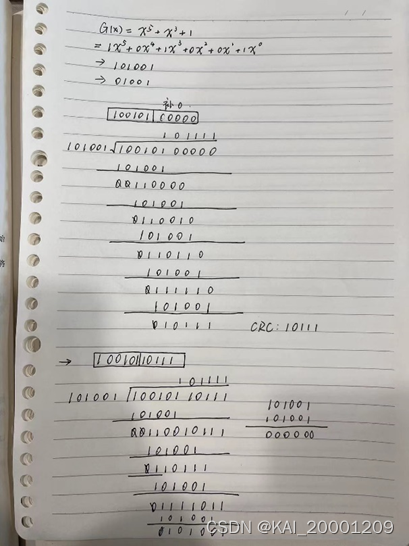 G(x) = x⁵ + x³ + 1
= 1x⁵ + 0x⁴ + 1x³ + 0x² + 0x¹ + 1x⁰
→ 101001
→ 01001
补0
100101 00000
101111
101001 √100101 00000
101001
00110000
101001
0110010
101001
0110110
101001
0111110
101001
010111 CRC: 10111
→ 100101 10111
101111
101001 √100101 10111
101001
00110010111
101001
0110111
101001
01111011
101001
101001
101001
000000
CSDN @KAI_20001209